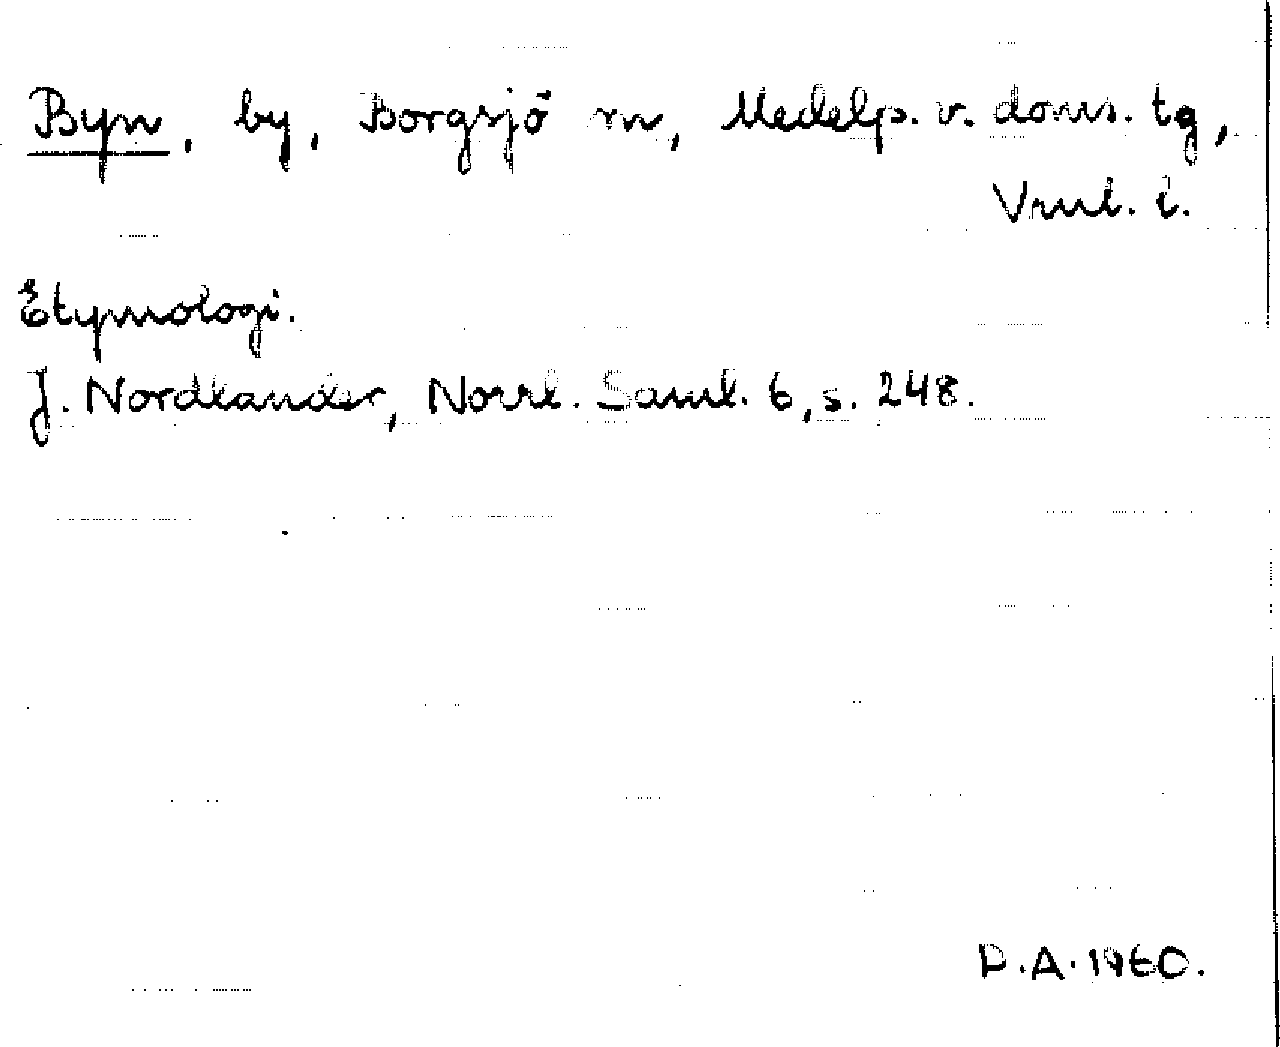 Byn, by, Borgsjö sn, Medelp. v. doms. tg,
Vnnl. l.
Etymologi.
J. Nordlander, Norrl. Saml. 6, s. 248.
P.A. 1960.